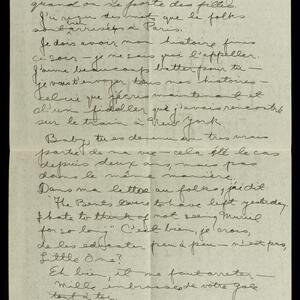 quand on se porte des filles.
J'ai reçu des mots que la folks
sont arrivés à Paris.
Je dois avoir mon histoire finis
ce soir - je ne sais que l'appeller.
J'aime beaucoup better pour te -
je vais t'envoyer tous nos histoires -
celui que j'écris maintenant est
d'un fiddler que j'avais rencontré
sur le train à New York
Baby, tu es devenue très vrais
partie de ma vie - cela fût le cas
depuis deux ans, mais pas
dans le même manière.
Dans ma lettre au folks, j'ai dit
"The Bents were to have left yesterday.
I hate to think of not seeing Muriel
for so long." C'est bien, je crois,
de les éducater peu à peu - n'est pas,
Little One?
Eh bien, il me faut arreter -
Mille embrasses de votre gale
tout à toi